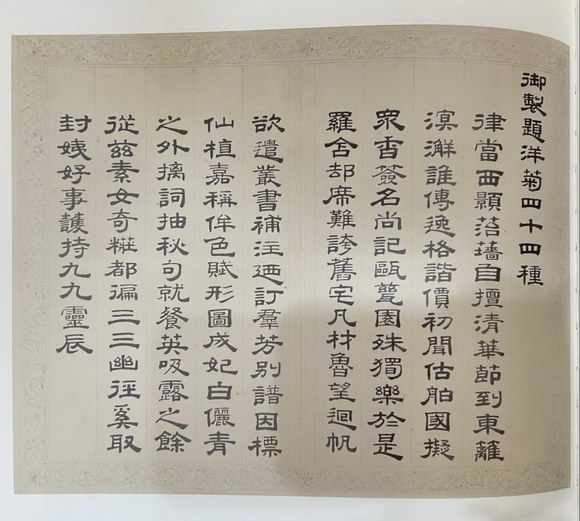 御製題洋菊四十四種
律當西顥菭墻自擅清華節到東籬
溟澥誰傳逸格諧價初聞估舶國擬
眾香簽名尚記甌蔓園殊獨樂於是
羅舍却席難誇舊宅凡材魯望迴帆
欲遣叢書補注迺訂羣芳別譜因標
仙植嘉稱侔色賦形圖成妃白儷青
之外摛詞抽秋句就餐英吸露之餘
從兹素女奇糚都徧三三幽徑奚取
封姨好事護持九九靈辰